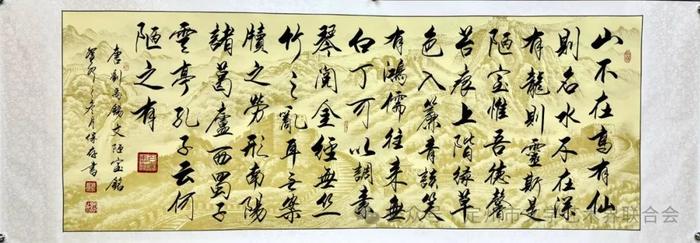 山不在高有仙
則名水不在深
有龍則靈斯是
陋室惟吾德馨
苔痕上階緑草
色入簾青談笑
有鴻儒往来無
白丁可以調素
琴閲金經無丝
竹之亂耳无案
牍之勞形南陽
諸葛廬西蜀子
雲亭孔子云何
陋之有
唐劉禹錫文陋室銘
癸卯之冬月保存書
公众号 定州市文学艺术界联合会